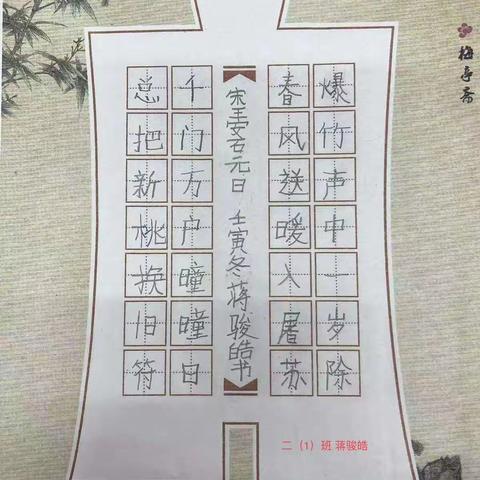 梅亭斋
爆竹声中一岁除
春风送暖入屠苏
宋王安石元日 壬寅冬蒋骏皓书
千门万户曈曈日
总把新桃换旧符
二（1）班 蒋骏皓